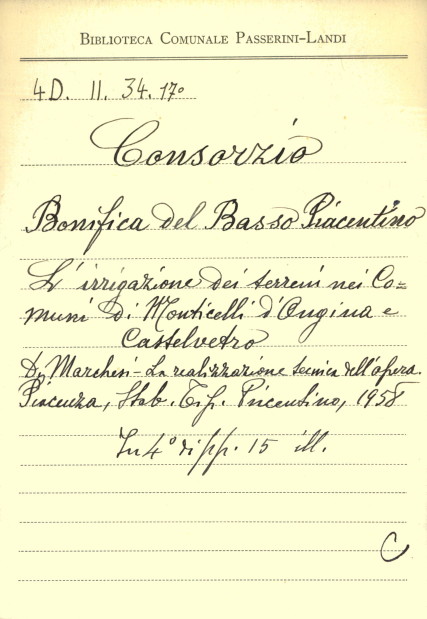 BIBLIOTECA COMUNALE PASSERINI-LANDI
4D. II. 34. 17º
Consorzio
Bonifica del Basso Piacentino
L'irrigazione dei terreni nei Co=
muni di Monticelli d'Ongina e
Castelvetro
Marchesi - La realizzazione tecnica dell'opera.
Piacenza, Stab. Tip. Piacentino, 1958
In 4º di pp. 15 ill.
C